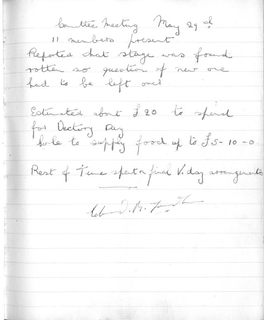 Comittee Meeting May 29th
11 members present
Repoted that stage was found
rotten so question of new one
had to be left over
Estimated about £20 to spend
for Victory Day
to supply food up to £5-10-0
Rest of Time spent on final V. day arrangements